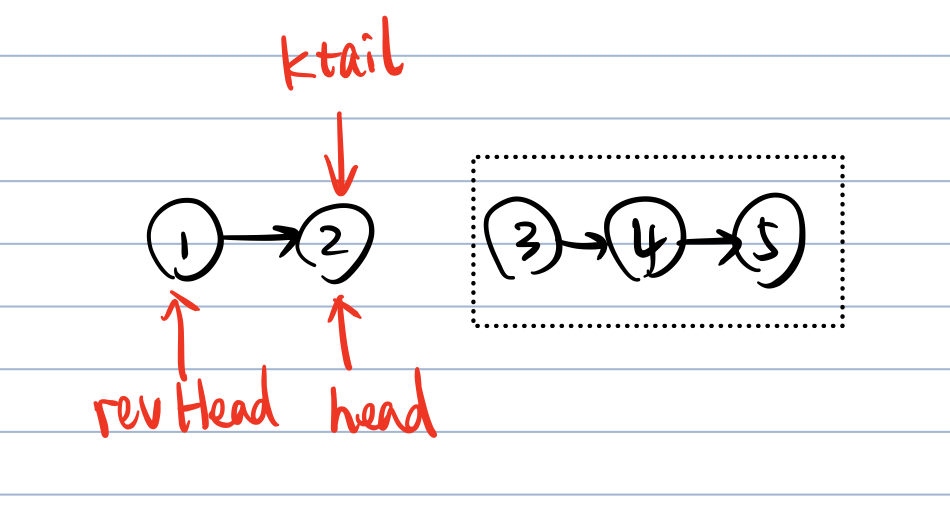 ktail
1 2 3 4 5
revHead head